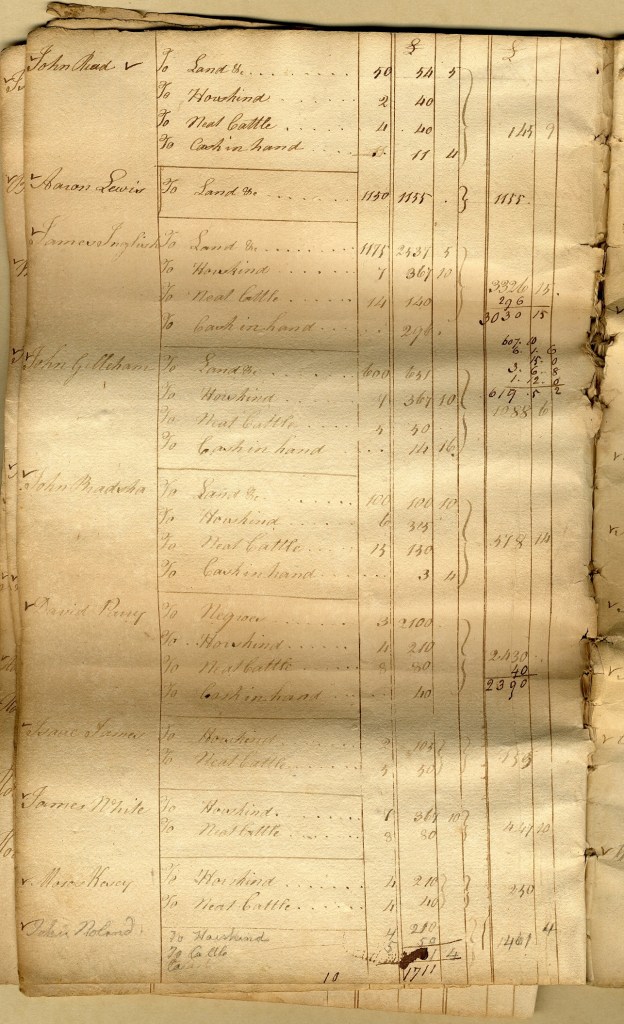 £ £
John Read To Land &c. 50 54 5
To Horskind 2 40
To Neat Cattle 4 40 145 9
To Cash in hand 11 4
Aaron Lewis To Land &c. 1150 1155 . 1155
James Inglish To Land &c. 1175 2537 5
To Horskind 7 367 10 3326 15
To Neat Cattle 14 140 296
To Cash in hand 296 3030 15
607 10
6. 1. 6
15. 0
John Gilleham To Land &c. 600 651 3. 6. 8
1. 12. 0
To Horskind 7 367 10 619. 5 2
To Neat Cattle 5 50 1088 6
To Cash in hand 14 16
John To Land &c. 100 100 10
To Horskind 6 315
To Neat Cattle 15 150 578 14
To Cash in hand 3 4
David To Negroes 3 2100
To Horskind 4 210 2430
To Neat Cattle 8 80 40
To Cash in hand 40 2390
Isaac James To Horskind 2 105
To Neat Cattle 5 50 155
James White To Horskind 7 367 10
To Neat Cattle 8 80 447 10
Moses To Horskind 4 210
To Neat Cattle 4 40 250
John Noland To Horskind 4 210
To Cattle 5 50 1461 4
4
10 1711